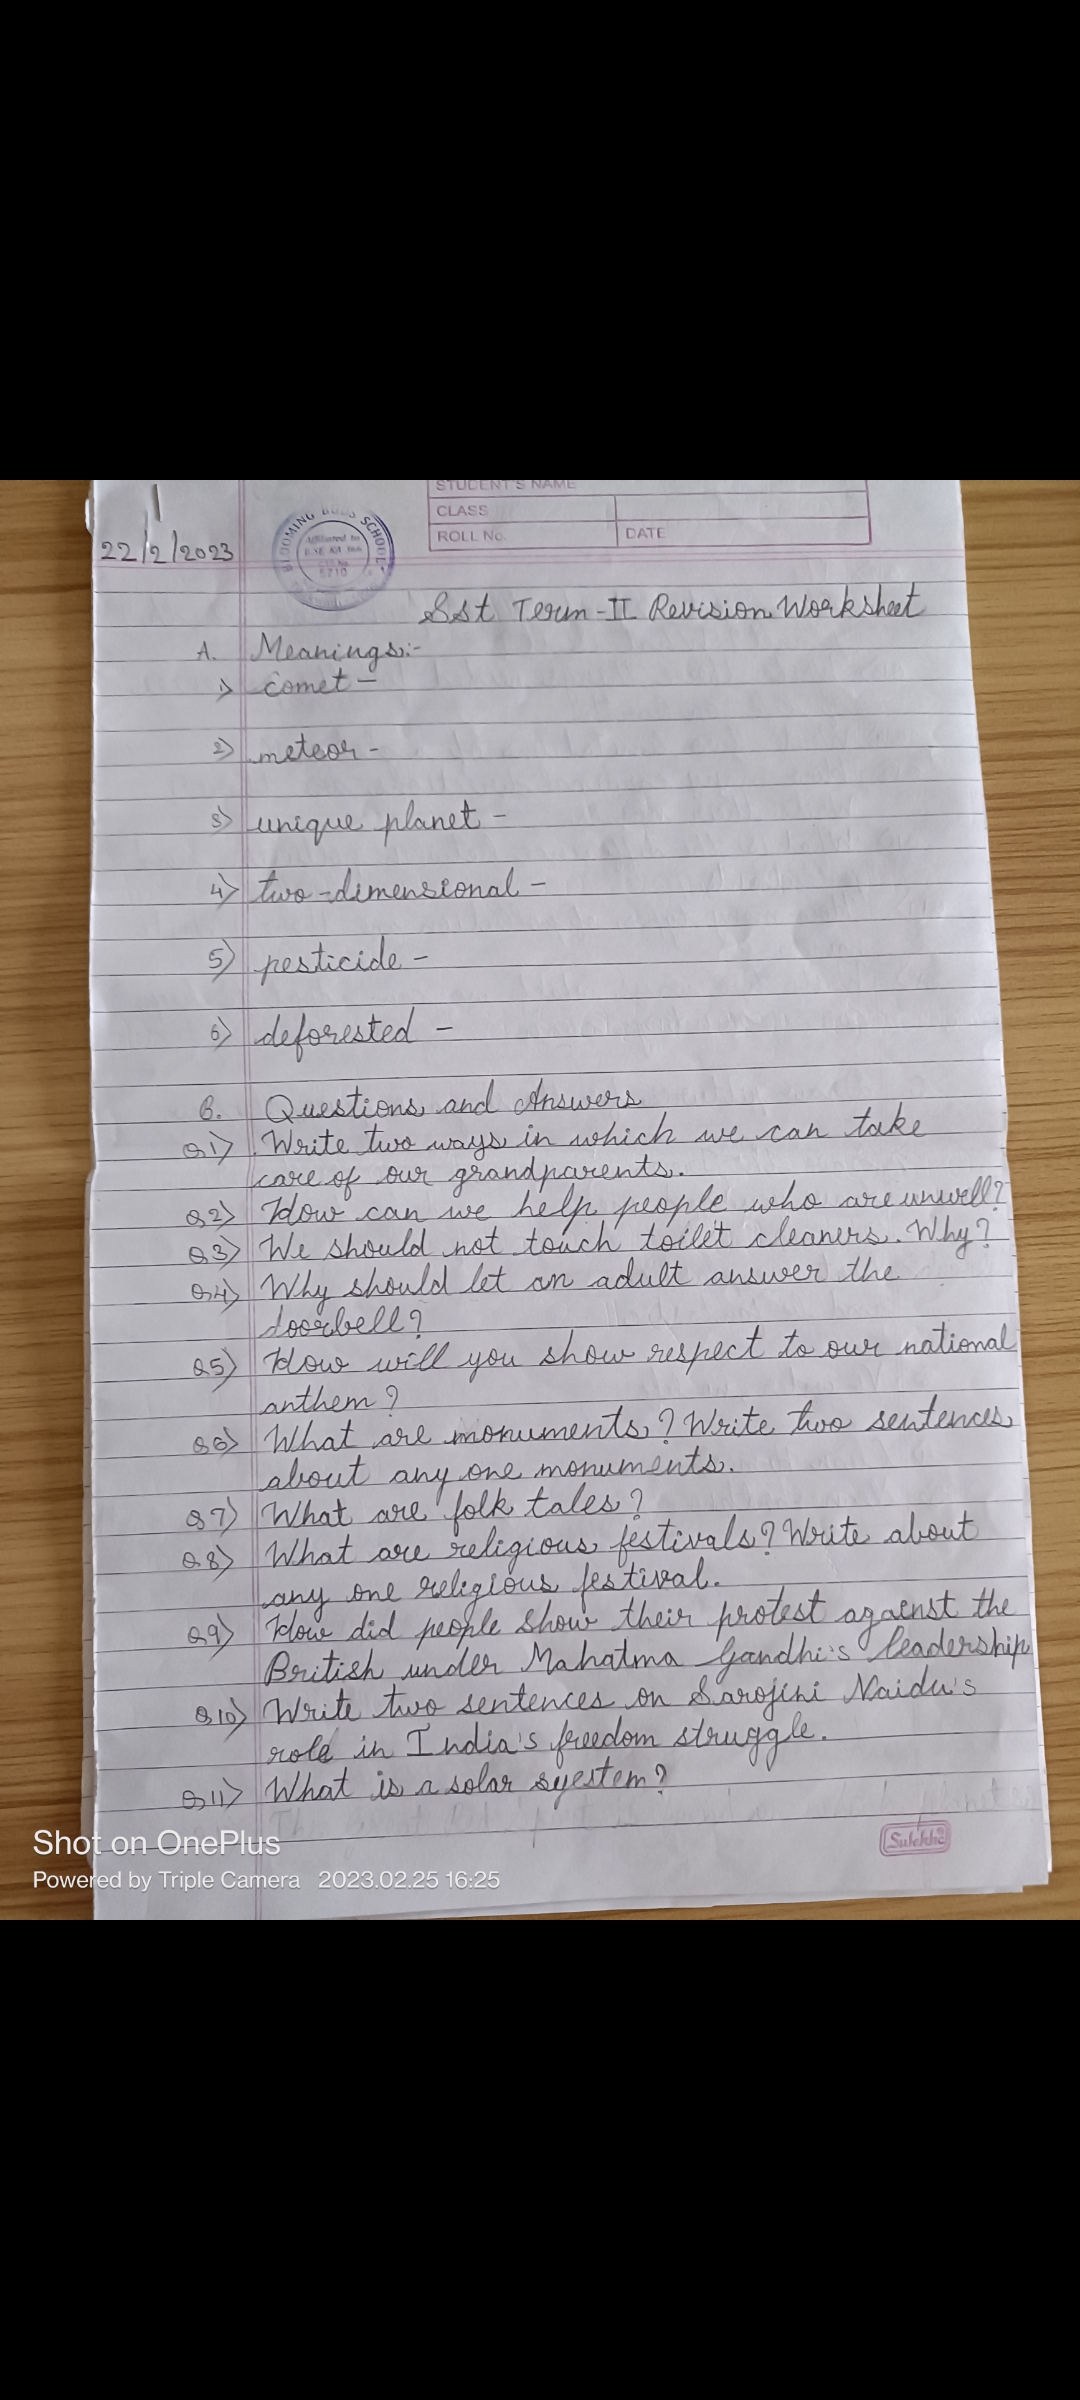 STUDENT'S NAME
CLASS
ROLL No. DATE
22/2/2023
BLOOMING BUDS SCHOOL
Affiliated to
Sst Term-II Revision Worksheet
A. Meanings:-
1) comet -
2) meteor -
3) unique planet -
4) two-dimensional -
5) pesticide -
6) deforested -
B. Questions and Answers
Q1) Write two ways in which we can take
care of our grandparents.
Q2) How can we help people who are unwell?
Q3) We should not touch toilet cleaners. Why?
Q4) Why should let an adult answer the
doorbell?
Q5) How will you show respect to our national
anthem?
Q6) What are monuments? Write two sentences
about any one monuments.
Q7) What are folk tales?
Q8) What are religious festivals? Write about
any one religious festival.
Q9) How did people show their protest against the
British under Mahatma Gandhi's leadership
Q10) Write two sentences on Sarojini Naidu's
role in India's freedom struggle.
Q11) What is a solar syestem?
Sulekha
Shot on OnePlus
Powered by Triple Camera 2023.02.25 16:25